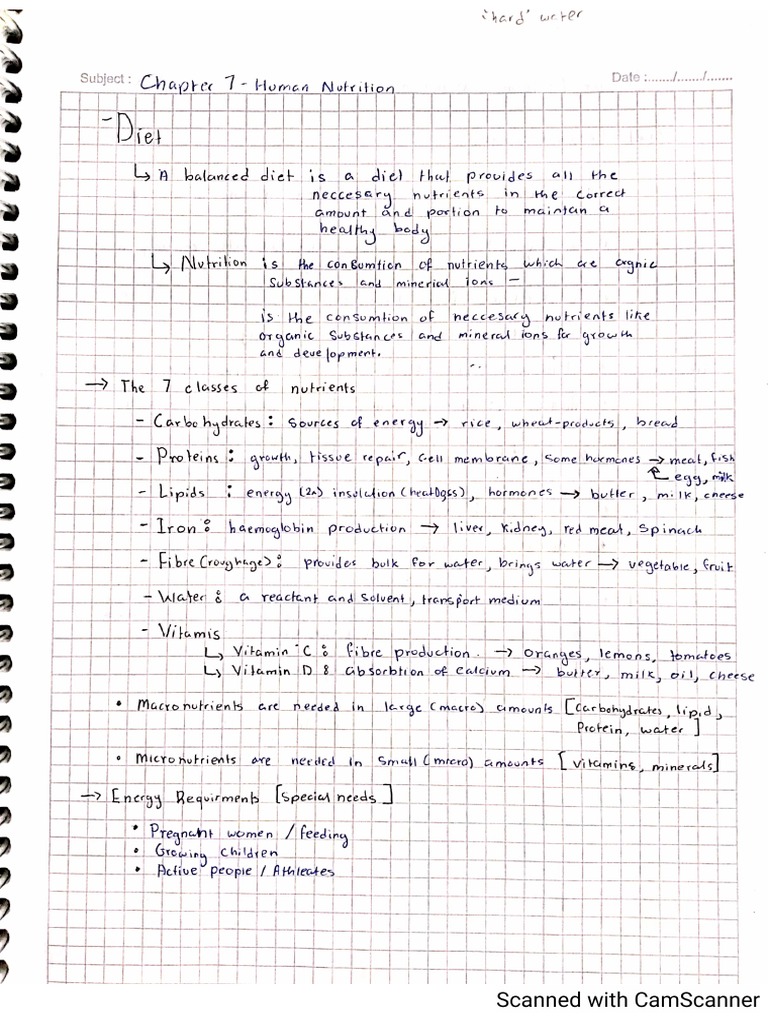 'hard' water
Subject : Chapter 7 - Human Nutrition Date :....../....../.......
- Diet
↳ A balanced diet is a diet that provides all the
neccesary nutrients in the correct
amount and portion to maintan a
healthy body
↳ Nutrition is the consumtion of nutrients which are orgnic
substances and minerial ions -
is the consumtion of neccesary nutrients like
organic substances and mineral ions for growth
and development.
→ The 7 classes of nutrients
- Carbohydrates : sources of energy → rice, wheat-products, bread
- Proteins : growth, tissue repair, cell membrane, some hormones → meat, fish
egg, milk
- Lipids : energy (2x) insulation (heat loss), hormones → butter, milk, cheese
- Iron : haemoglobin production → liver, kidney, red meat, spinach
- Fibre (roughage) : provides bulk for water, brings water → vegetable, fruit
- Water : a reactant and solvent, transport medium
- Vitamis
↳ Vitamin C : fibre production. → oranges, lemons, tomatoes
↳ Vitamin D : absorbtion of calcium → butter, milk, oil, cheese
• Macronutrients are needed in large (macro) amounts [carbohydrates, lipid,
Protein, water]
• Micronutrients are needed in small (micro) amounts [vitamins, minerals]
→ Energy Requirments [special needs]
• Pregnant women / feeding
• Growing children
• Active people / Athleates
Scanned with CamScanner